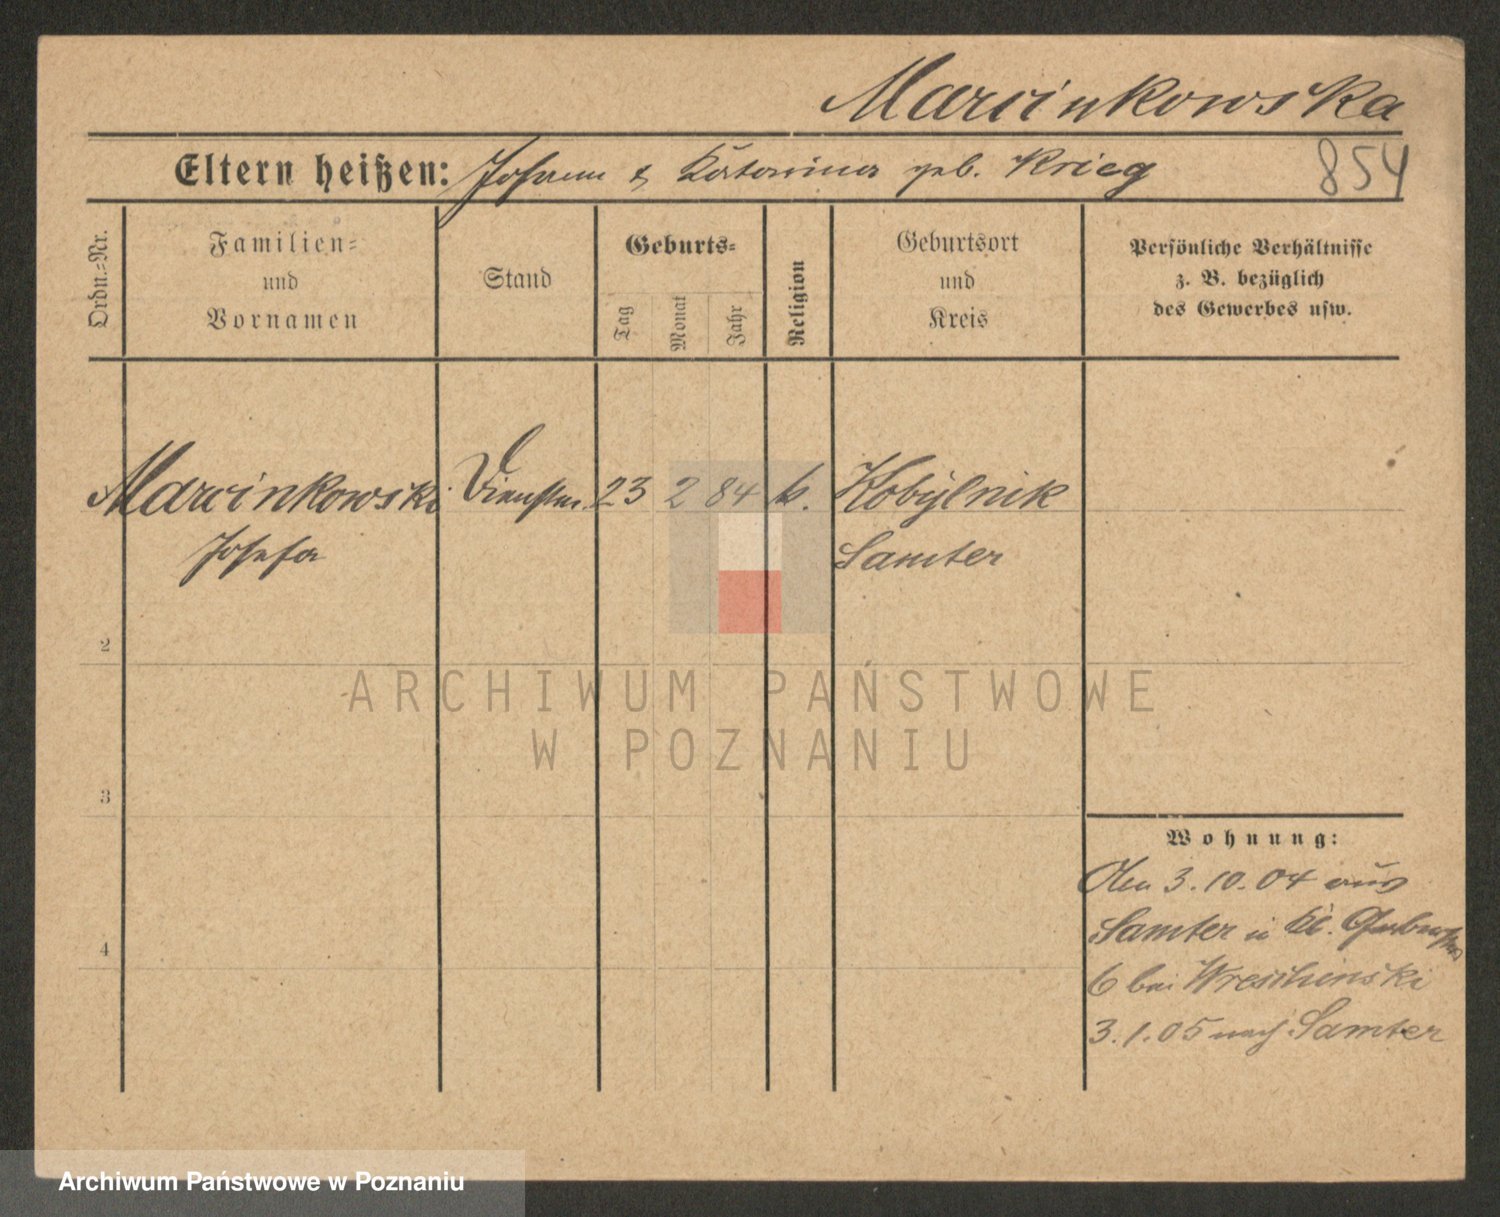 Marcinkowska
Eltern heißen: Johann & Katarina geb. Krieg
854
Ordn.=Nr.
Familien=
und
Vornamen
Stand
Geburts=
Tag
Monat
Jahr
Religion
Geburtsort
und
Kreis
Persönliche Verhältnisse
z. B. bezüglich
des Gewerbes usw.
Marcinkowski Dienstm. 23 2 84 k. Kobylnik
Josefa Samter
2
ARCHIWUM PAŃSTWOWE
W POZNANIU
3
Wohnung:
Den 3.10.04 aus
4
Samter in Kl. Gerberstr
6 bei Wreschinski
3.1.05 nach Samter
Archiwum Państwowe w Poznaniu